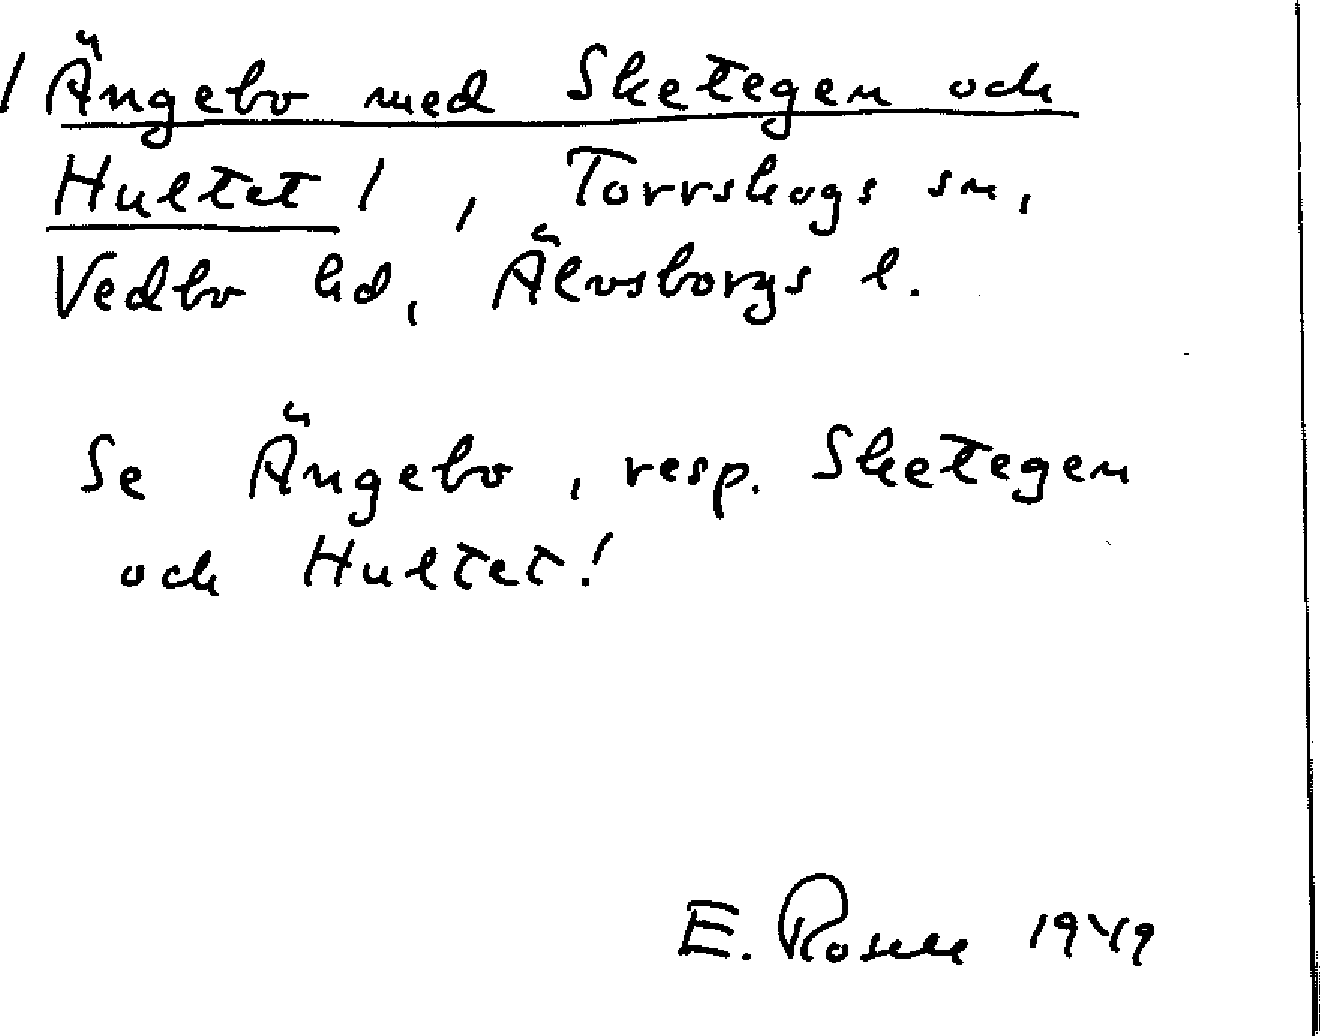 / Ängebo med Sketegen och
Hultet / , Torrskogs sn,
Vedbo hd, Älvsborgs l.
Se Ängebo, resp. Sketegen
och Hultet!
E. Rosell 1949